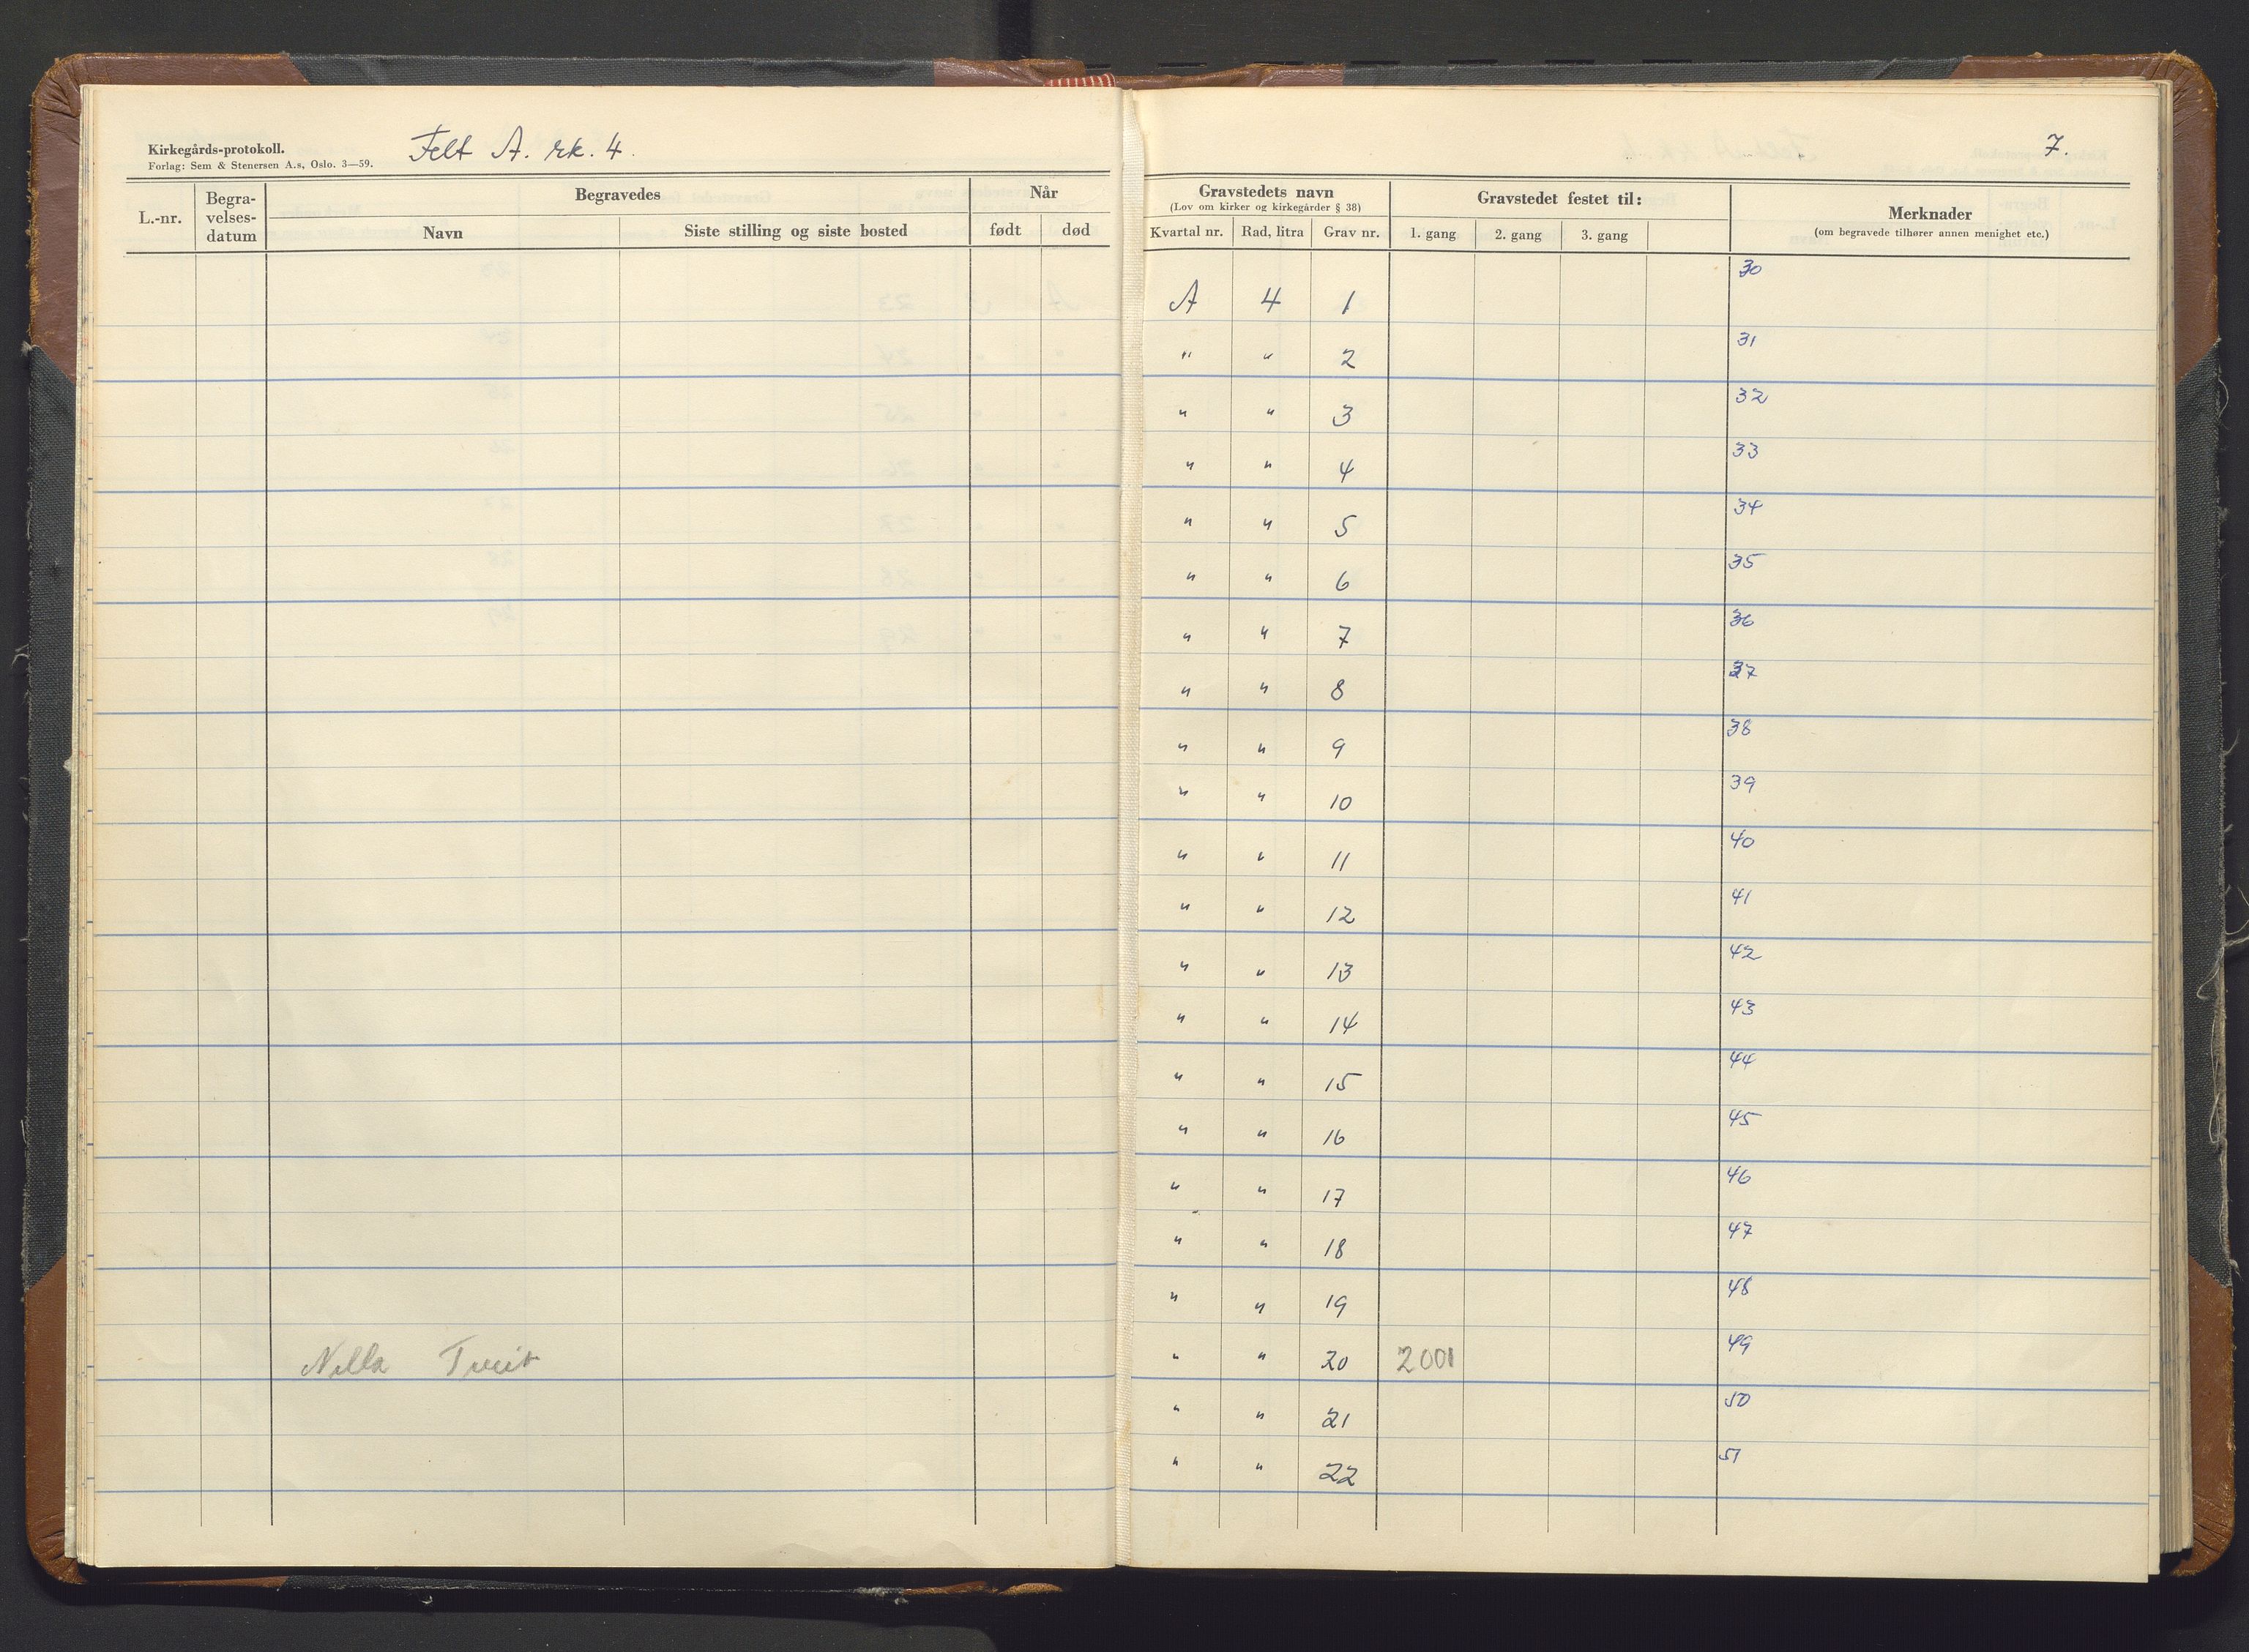 Kirkegårds-protokoll.
Forlag: Sem & Stenersen A.s, Oslo. 3—59.
Felt A. rk. 4.
7.
L.-nr.
Begra-
velses-
datum
Begravedes
Navn
Siste stilling og siste bosted
Når
født
død
Gravstedets navn
(Lov om kirker og kirkegårder § 38)
Kvartal nr.
Rad, litra
Grav nr.
Gravstedet festet til:
1. gang
2. gang
3. gang
Merknader
(om begravede tilhører annen menighet etc.)
A 4 1 30
" " 2 31
" " 3 32
" " 4 33
" " 5 34
" " 6 35
" " 7 36
" " 8 37
" " 9 38
" " 10 39
" " 11 40
" " 12 41
" " 13 42
" " 14 43
" " 15 44
" " 16 45
" " 17 46
" " 18 47
" " 19 48
Nella Tveit " " 20 2001 49
" " 21 50
" " 22 51